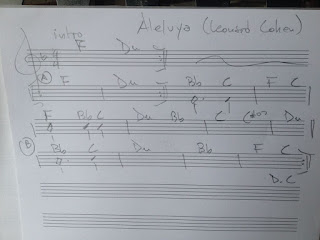 Aleluya (Leonard Cohen)
intro F Dm
A F Dm Bb C F C
F Bb C Dm Bb C Dm
B Bb C Dm Bb F C
D.C